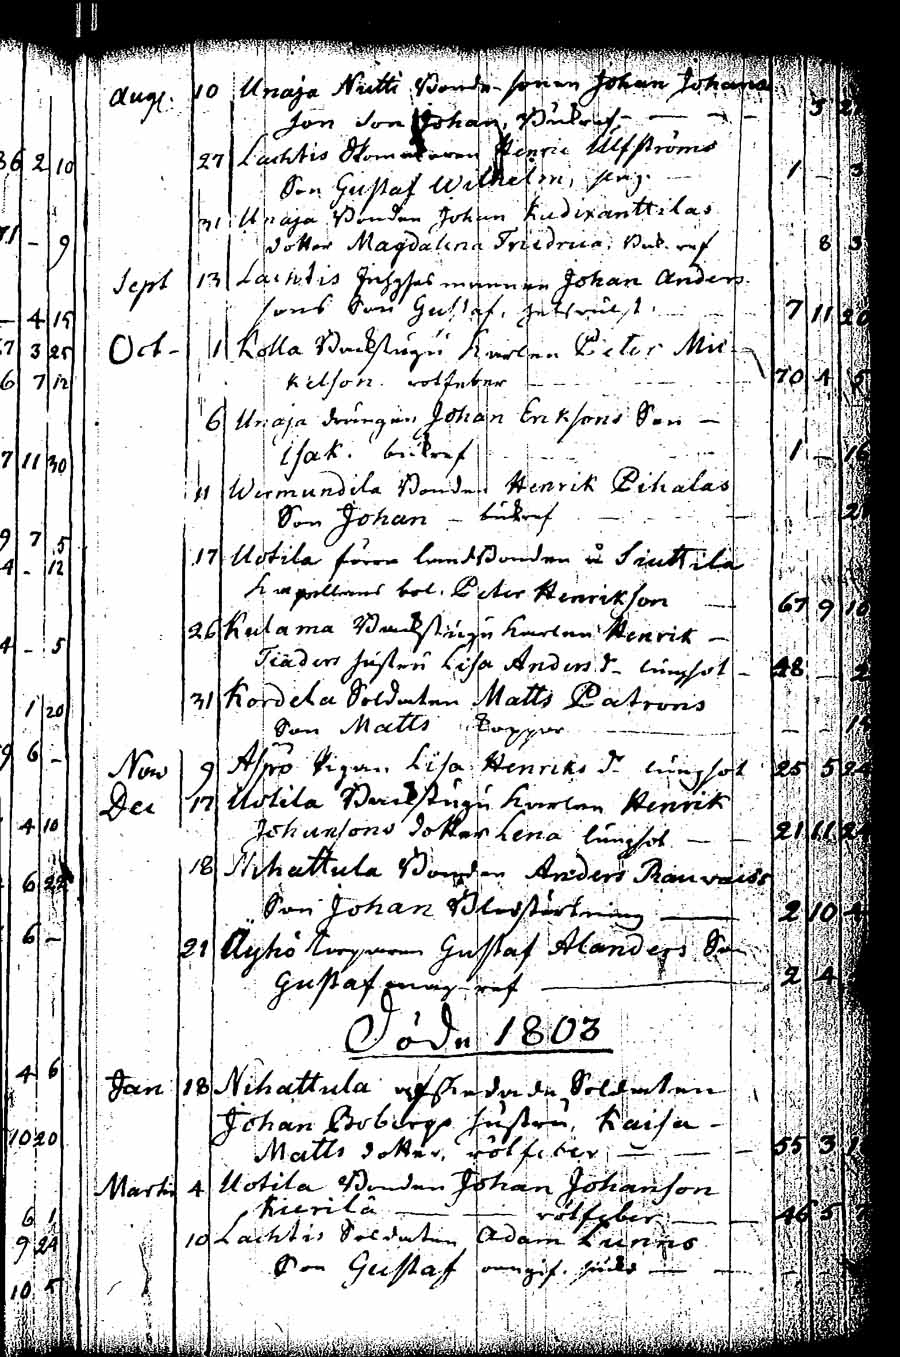 Aug. 10 Unaja Nutti Bonde sonen Johan Johans
son Son Johan, Bukref 5 2
36 2 10 27 Lachtis Henric Ulfströms
Son Gustaf Wilhelm, 1 - 3
71 - 9 31 Unaja Bonden Johan Kudixanttilas
dotter Magdalena Fredrica. Buk ref 8 3
Sept 13 Lachtis Johan Anders
- 4 15 sons Son Gustaf. 7 11 20
57 3 25 Oct - 1 Kolla Backstugu Karlen Peter Mic
6 7 12 kelson. rötfeber 70 4 5
6 Unaja drängen Johan Eriksons Son -
7 11 30 Isak. bukref 1 - 16
11 Wermundila Bonden Henrik Pihalas
Son Johan - bukref 2
9 7 5 17 Uotila förra landbonden å Siuttila
4 - 12 Capellans bol. Peter Henrikson 67 9 10
26 Kulama Backstugu Karlen Henrik -
4 - 5 Tiäders hustru Lisa Anders d. lungsot 48 - 2
1 20 31 Kordela Soldaten Matts Patrons
Son Matts Koppor - - 14
9 6 - Nov 9 Äyhö Pigan Lisa Henriks d. lungsot 25 5 24
Dec 17 Uotila Backstugu Karlen Henrik
4 10 Johansons dotter Lena lungsot 21 11 24
18 Nihattula Bonden Anders Rauvaiss
6 22 Son Johan Blodstörtning 2 10
6 - 21 Äyhö Torparen Gustaf Alanders Son
Gustaf mag ref 2 4
Döde 1803
4 6 Jan 18 Nihattula afskedade Soldaten
Johan Bobergs hustru, Kaisa -
10 20 Matts dotter, rötfeber 55 3 1
Martii 4 Uotila Bonden Johan Johanson
6 1 Kierilä rötfeber 46 5 7
9 24 10 Lachtis Soldaten Adam Lunns
10 5 Son Gustaf